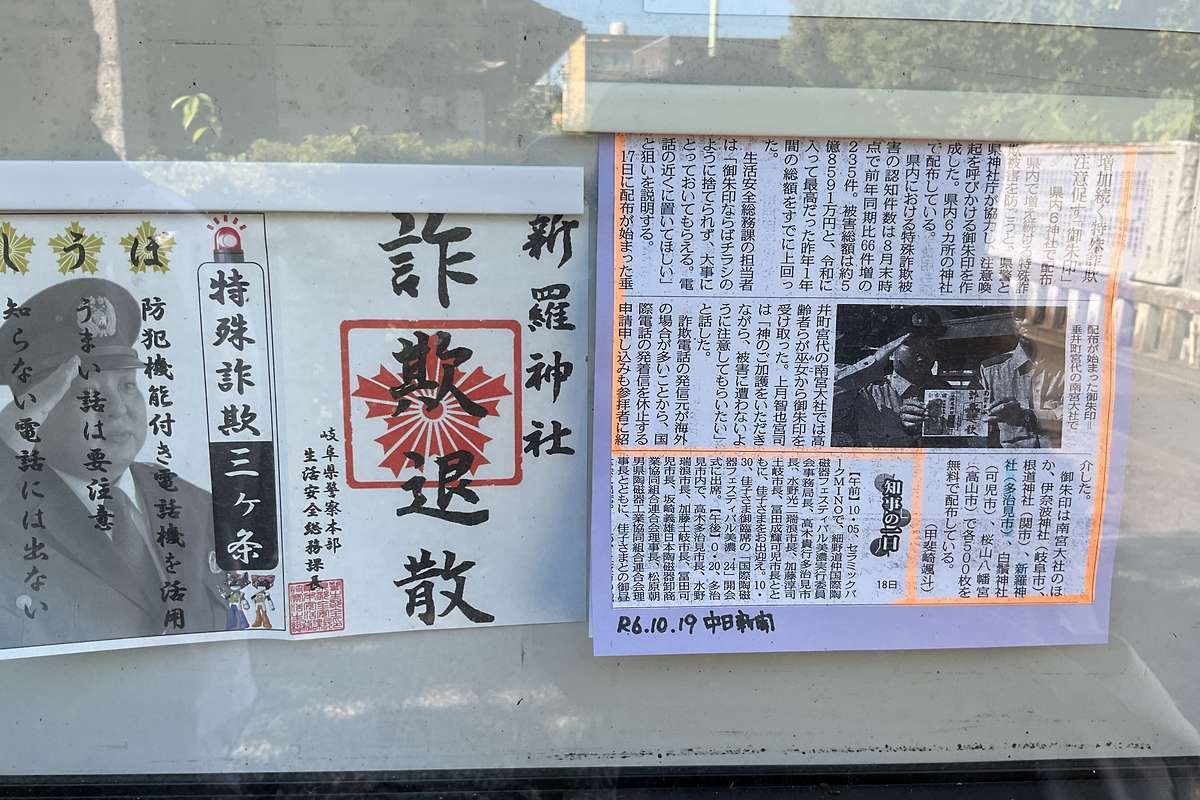 新羅神社
詐欺退散
岐阜県警察本部
生活安全総務課長
特殊詐欺三ケ条
ほうし
防犯機能付き電話機を活用
うまい話は要注意
知らない電話には出ない
増加続く特殊詐欺
注意促す「御朱印」
県内6神社で配布
県内で増え続ける特殊詐
欺被害を防ごうと、県警と
県神社庁が協力し、注意喚
起を呼びかける御朱印を作
成した。県内6カ所の神社
で配布している。
県内における特殊詐欺被
害の認知件数は8月末時
点で前年同期比66件増の
235件。被害総額は約5
億8591万円と、令和に
入って最高だった昨年1年
間の総額をすでに上回っ
た。
生活安全総務課の担当者
は「御朱印ならばチラシの
ように捨てられず、大事に
とっておいてもらえる。電
話の近くに置いてほしい」
と狙いを説明する。
17日に配布が始まった垂
配布が始まった御朱印＝
垂井町宮代の南宮大社で
井町宮代の南宮大社では高
齢者らが巫女から御朱印を
受け取った。上月智也宮司
は「神のご加護をいただき
ながら、被害に遭わないよ
うに注意してもらいたい」
と話した。
詐欺電話の発信元が海外
の場合が多いことから、国
際電話の発着信を休止する
申請申し込みも参拝者に紹
介した。
御朱印は南宮大社のほ
か、伊奈波神社（岐阜市）、
根道神社（関市）、新羅神
社（多治見市）、白鬚神社
（可児市）、桜山八幡宮
（高山市）で各500枚を
無料で配布している。
（甲斐崎颯斗）
知事の一日
18日
【午前】10・05、セラミックパ
ークMINOで、細野道仲国際陶
磁器フェスティバル美濃実行委員
会事務局長、高木貴行多治見市
長、水野光二瑞浪市長、加藤淳司
土岐市長、冨田成輝可児市長とと
もに、佳子さまをお出迎え。10・
30、佳子さま御臨席の「国際陶磁
器フェスティバル美濃'24」開会
式に出席。【午後】0・20、多治
見市内で、高木多治見市長、水野
瑞浪市長、加藤土岐市長、冨田可
児市長、坂崎義雄日本陶磁器卸商
業協同組合連合会理事長、松原朝
男県陶磁器工業協同組合連合会理
事長とともに、佳子さまとの御昼
R6.10.19 中日新聞